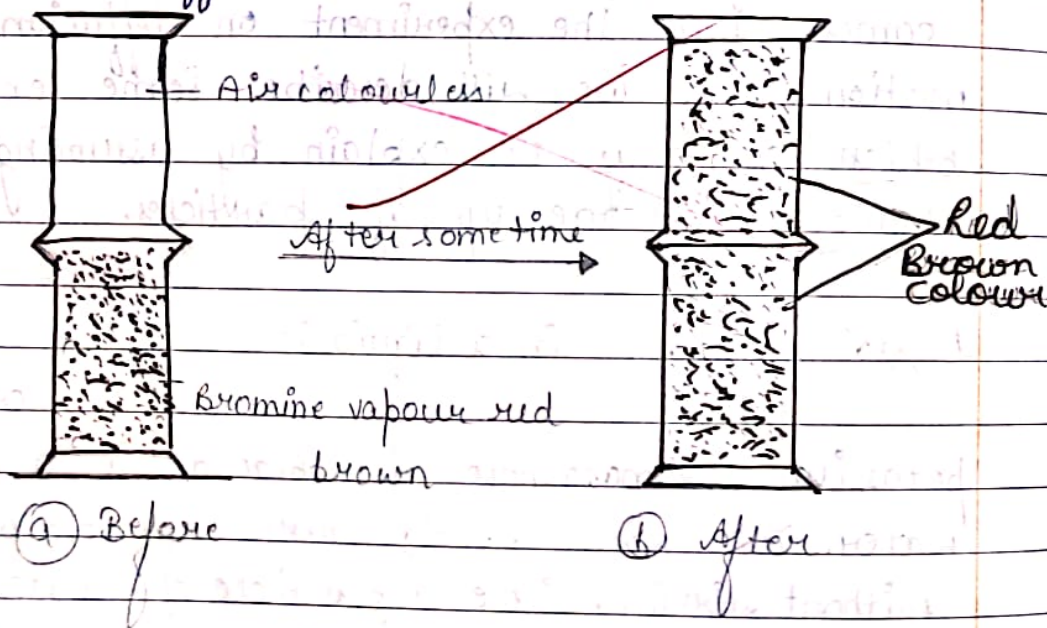 Air colourless
After sometime
Red
Brown
Colour
Bromine vapour red
brown
(a) Before
(b) After